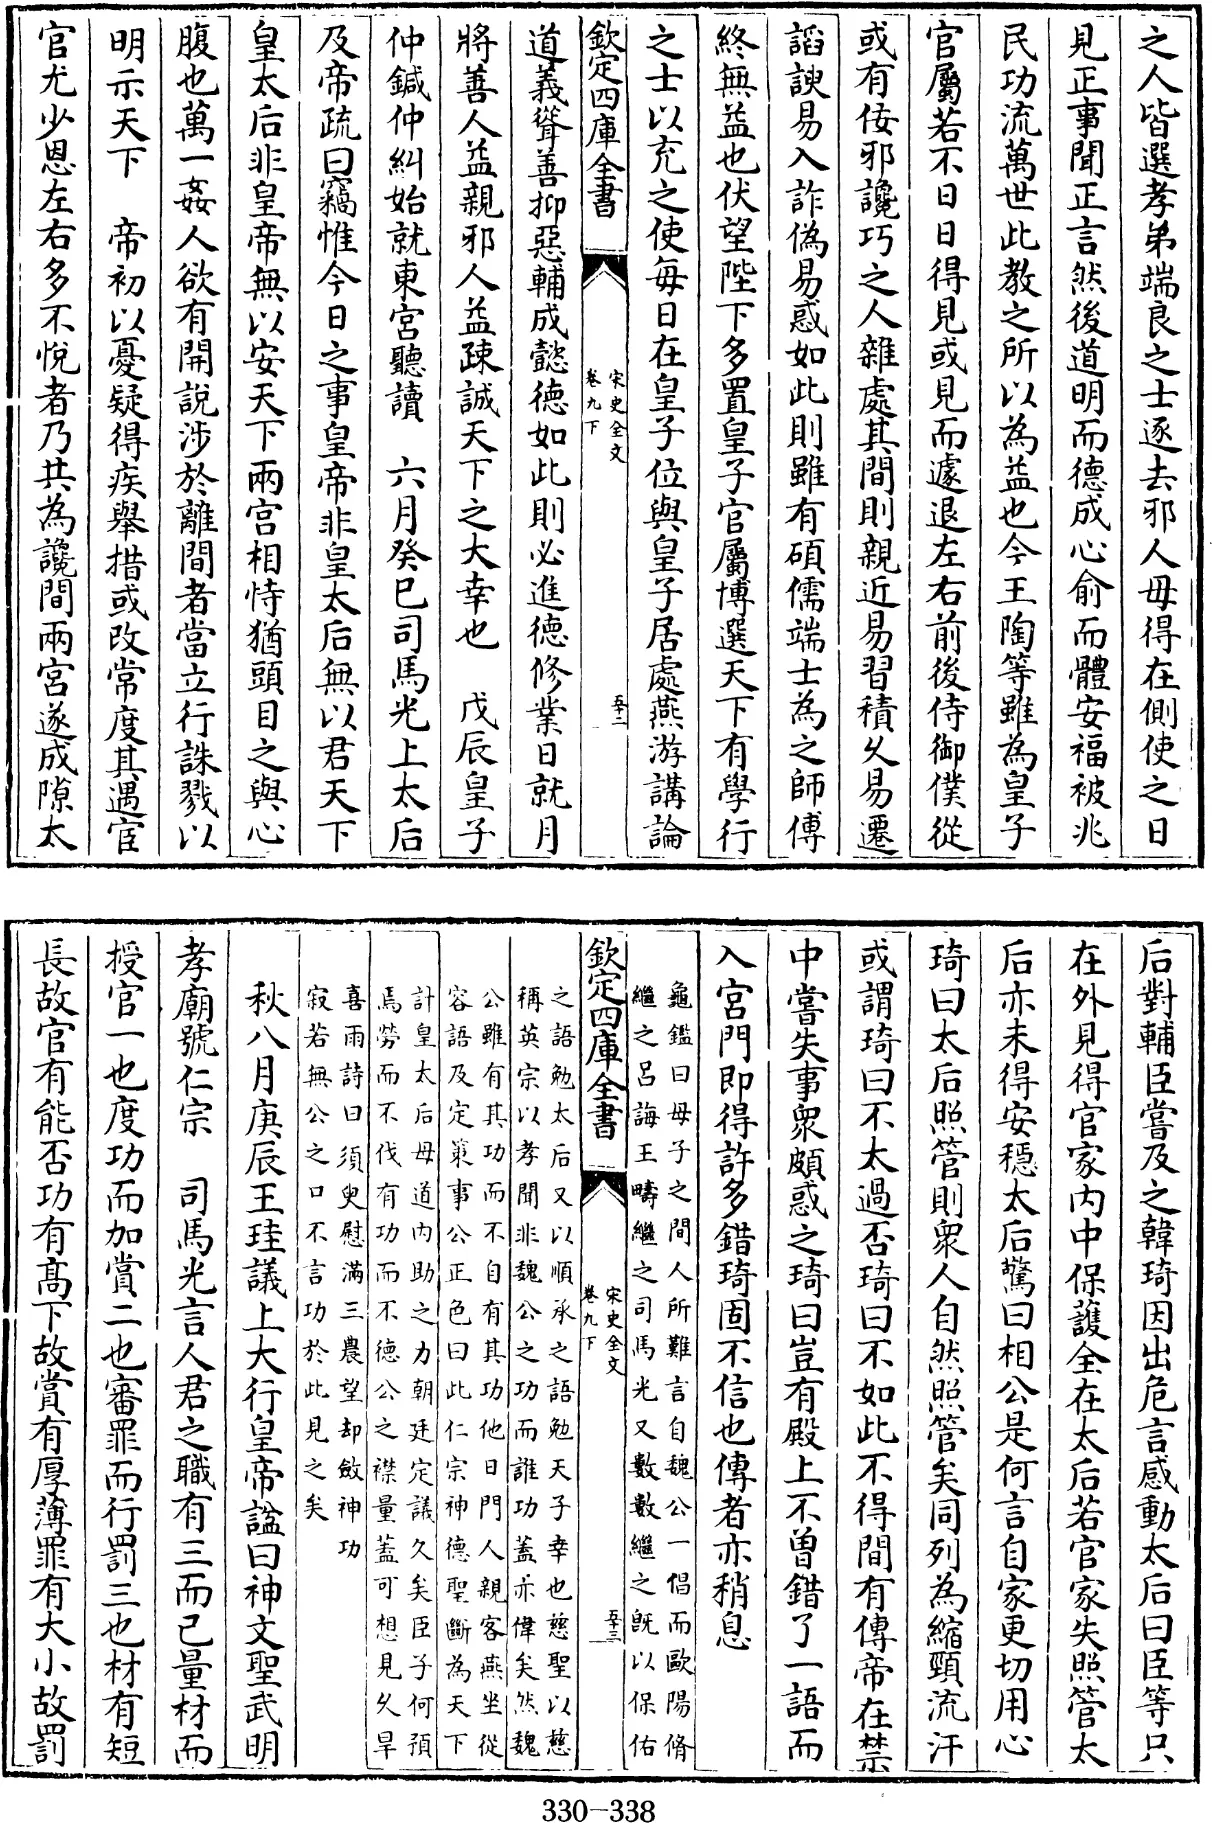 之人皆選孝弟端良之士逐去邪人毋得在側使之日
見正事聞正言然後道明而德成心俞而體安福被兆
民功流萬世此教之所以為益也今王陶等雖為皇子
官屬若不日日得見或見而遽退左右前後侍御僕從
或有佞邪讒巧之人雜處其間則親近易習積久易遷
諂諛易入詐偽易惑如此則雖有碩儒端士為之師傅
終無益也伏望陛下多置皇子官屬博選天下有學行
之士以充之使每日在皇子位與皇子居處燕游講論
欽定四庫全書
宋史全文
卷九下
五十二
道義聳善抑惡輔成懿德如此則必進德修業日就月
將善人益親邪人益疎誠天下之大幸也 戊辰皇子
仲鍼仲糾始就東宮聽讀 六月癸巳司馬光上太后
及帝疏曰竊惟今日之事皇帝非皇太后無以君天下
皇太后非皇帝無以安天下兩宮相恃猶頭目之與心
腹也萬一姦人欲有開說涉於離間者當立行誅戮以
明示天下 帝初以憂疑得疾舉措或改常度其遇宦
官尤少恩左右多不悅者乃共為讒間兩宮遂成隙太
后對輔臣嘗及之韓琦因出危言感動太后曰臣等只
在外見得官家內中保護全在太后若官家失照管太
后亦未得安穩太后驚曰相公是何言自家更切用心
琦曰太后照管則衆人自然照管矣同列為縮頸流汗
或謂琦曰不太過否琦曰不如此不得間有傳帝在禁
中嘗失事衆頗惑之琦曰豈有殿上不曾錯了一語而
入宮門即得許多錯琦固不信也傳者亦稍息
龜鑑曰母子之間人所難言自魏公一倡而歐陽脩
繼之呂誨王疇繼之司馬光又數數繼之旣以保佑
欽定四庫全書
宋史全文
卷九下
五十三
之語勉太后又以順承之語勉天子幸也慈聖以慈
稱英宗以孝聞非魏公之功而誰功蓋亦偉矣然魏
公雖有其功而不自有其功他日門人親客燕坐從
容語及定策事公正色曰此仁宗神德聖斷為天下
計皇太后母道內助之力朝廷定議久矣臣子何預
焉勞而不伐有功而不德公之襟量蓋可想見久旱
喜雨詩曰須臾慰滿三農望却斂神功
寂若無公之口不言功於此見之矣
秋八月庚辰王珪議上大行皇帝諡曰神文聖武明
孝廟號仁宗 司馬光言人君之職有三而已量材而
授官一也度功而加賞二也審罪而行罰三也材有短
長故官有能否功有高下故賞有厚薄罪有大小故罰
330-338